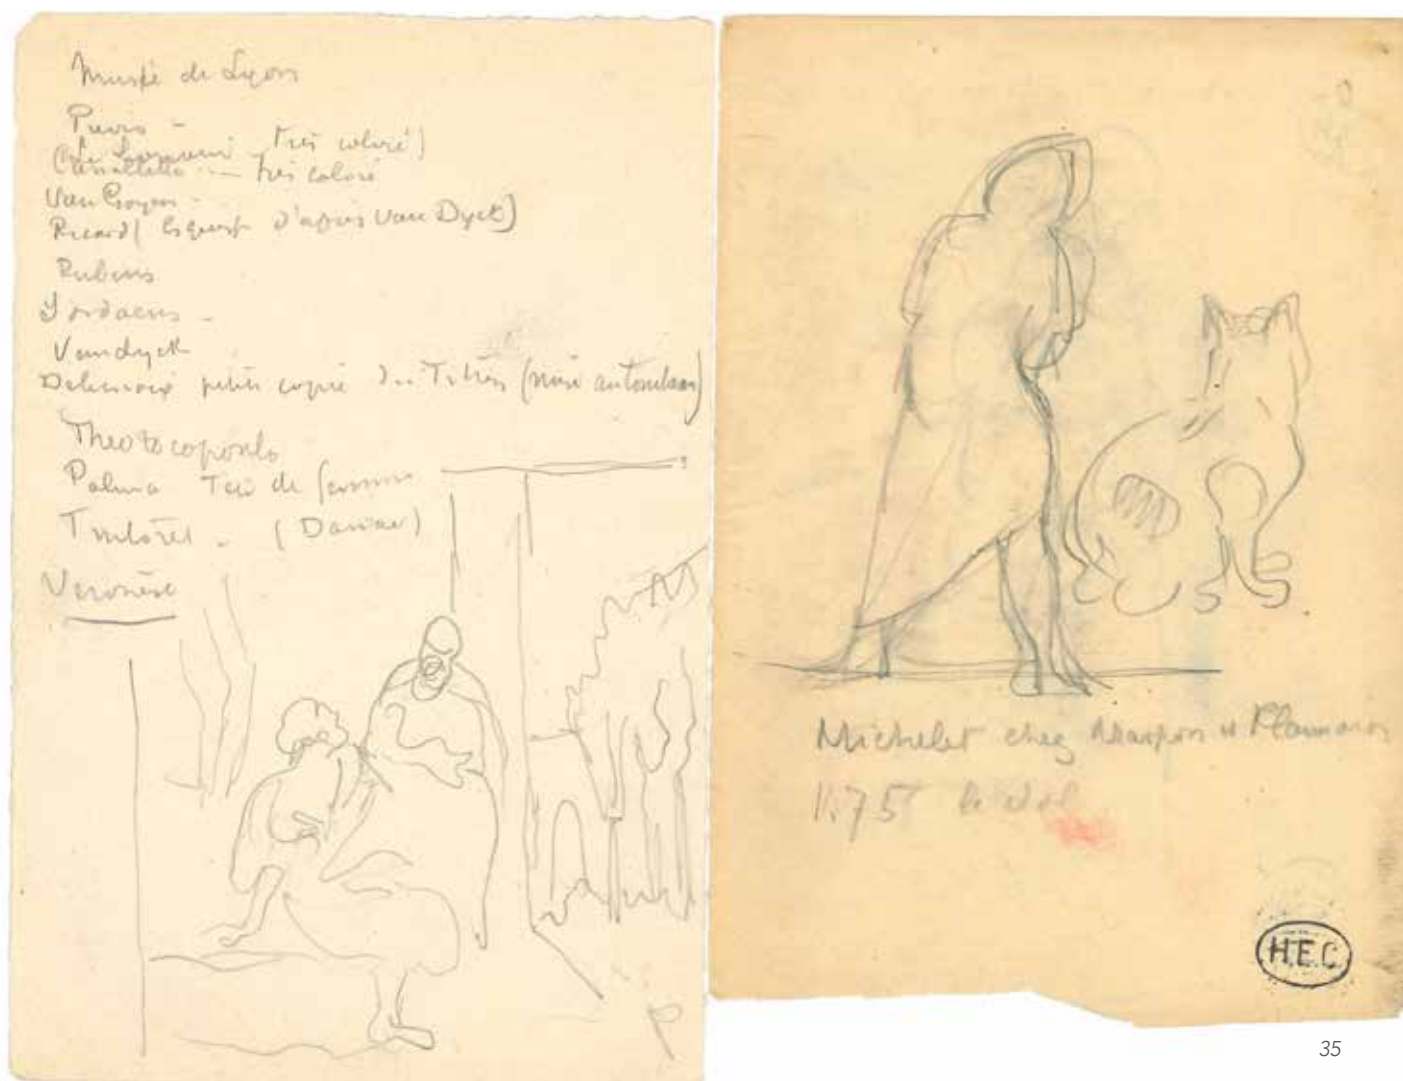 Musée de Lyon
Puvis -
très coloré)
Canaletto - très coloré
Van Goyen -
Ricard (d'après Van Dyck)
Rubens
Jordaens -
Vandyck
Delacroix petite copie du Titien (mise au tombeau)
Theotocopoulo
Palma Tête de femme
Tintoret - (Danae)
Veronèse
Michelet chez Marpon et Flammarion
1.75 le vol
H.E.C.
35